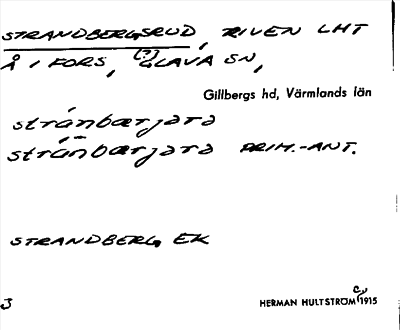 STRANDBERGSRUD, RIVEN LHT
Å I FORS, (?) GLAVA SN,
Gillbergs hd, Värmlands län
stránbærjərə
stránbærjərə PRIM.-ANT.
STRANDBERG EK
3
HERMAN HULTSTRÖM 1915